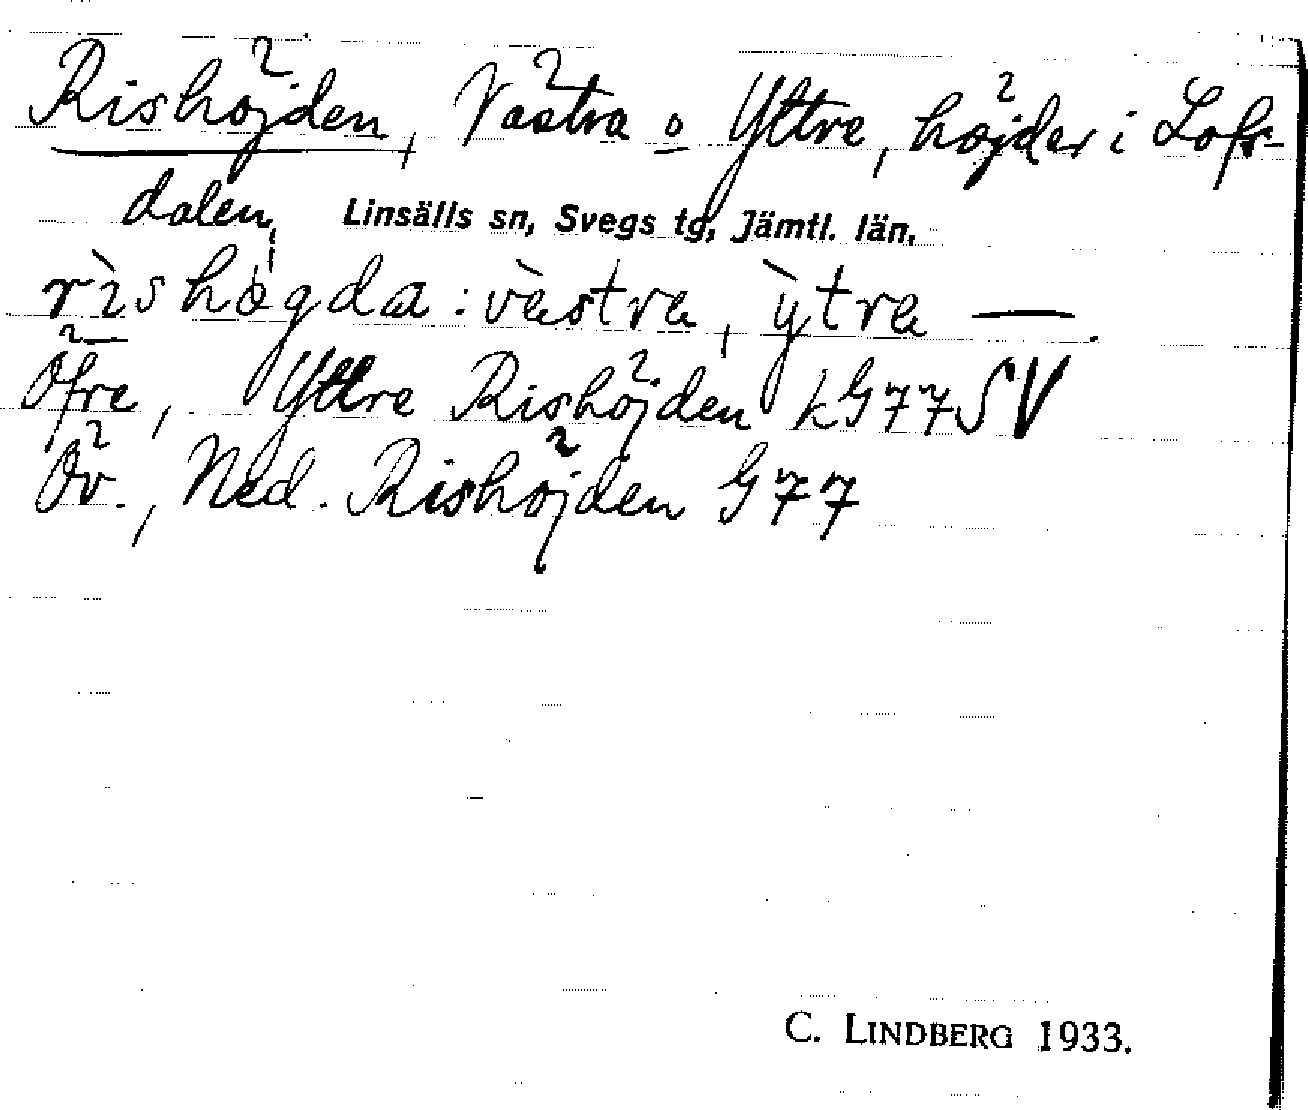 Rishöjden, Västra o Yttre, höjder i Lofs-
dalen, Linsälls sn, Svegs tg, Jämtl. län.
rìshögda: vàstra, ỳtra —
Öfre, Yttre Rishöjden kG77SV
Öv., Ned. Rishöjden G77
C. LINDBERG 1933.